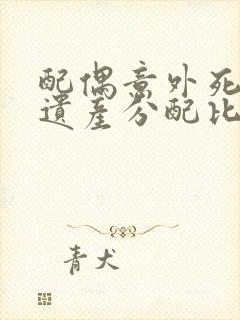 配偶意外死
遺產分配比
青犬